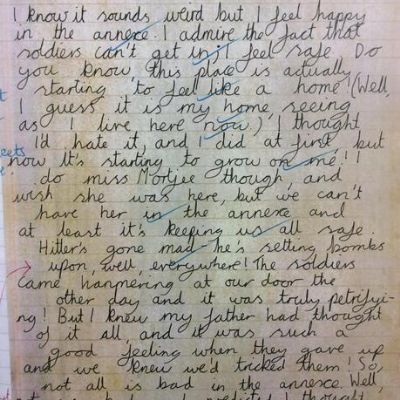 I know it sounds weird but I feel happy
in the annexe. I admire the fact that
soldiers can't get in; I feel safe. Do
you know, this place is actually
starting to feel like a home! (Well,
I guess it is my home, seeing
as I live here now.) I thought
I'd hate it, and I did at first, but
now It's starting to grow on me! I
do miss Mortjee though, and
wish she was here, but we can't
have her in the annexe and
at least it's keeping us all safe.
Hitler's gone mad - he's setting bombs
upon, well, everywhere! The soldiers
came, hammering at our door the
other day and it was truly petrifyi-
ng! But I knew my father had thought
of it all, and it was such a
good feeling when they gave up
and we knew we'd tricked them! So,
not all is bad in the annexe. Well,
I thought